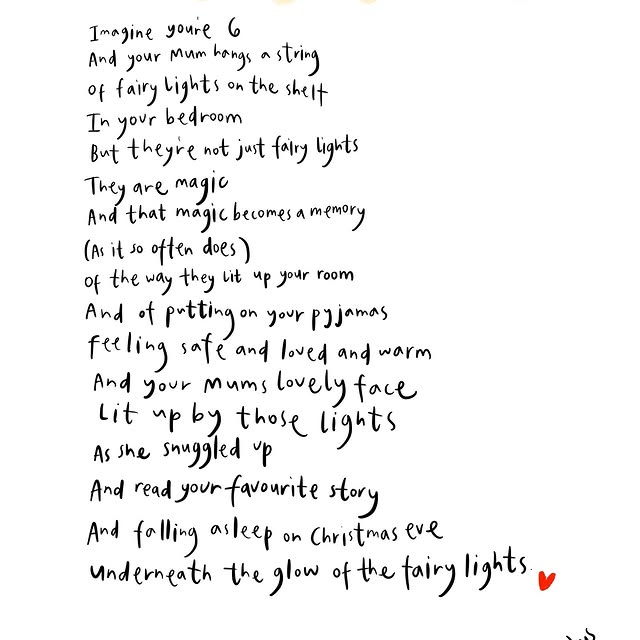 Imagine you're 6
And your Mum hangs a string
of fairy lights on the shelf
In your bedroom
But they're not just fairy lights
They are magic
And that magic becomes a memory
(As it so often does)
of the way they lit up your room
And of putting on your pyjamas
feeling safe and loved and warm
And your mums lovely face
Lit up by those lights
As she snuggled up
And read your favourite story
And falling asleep on Christmas eve
underneath the glow of the fairy lights.